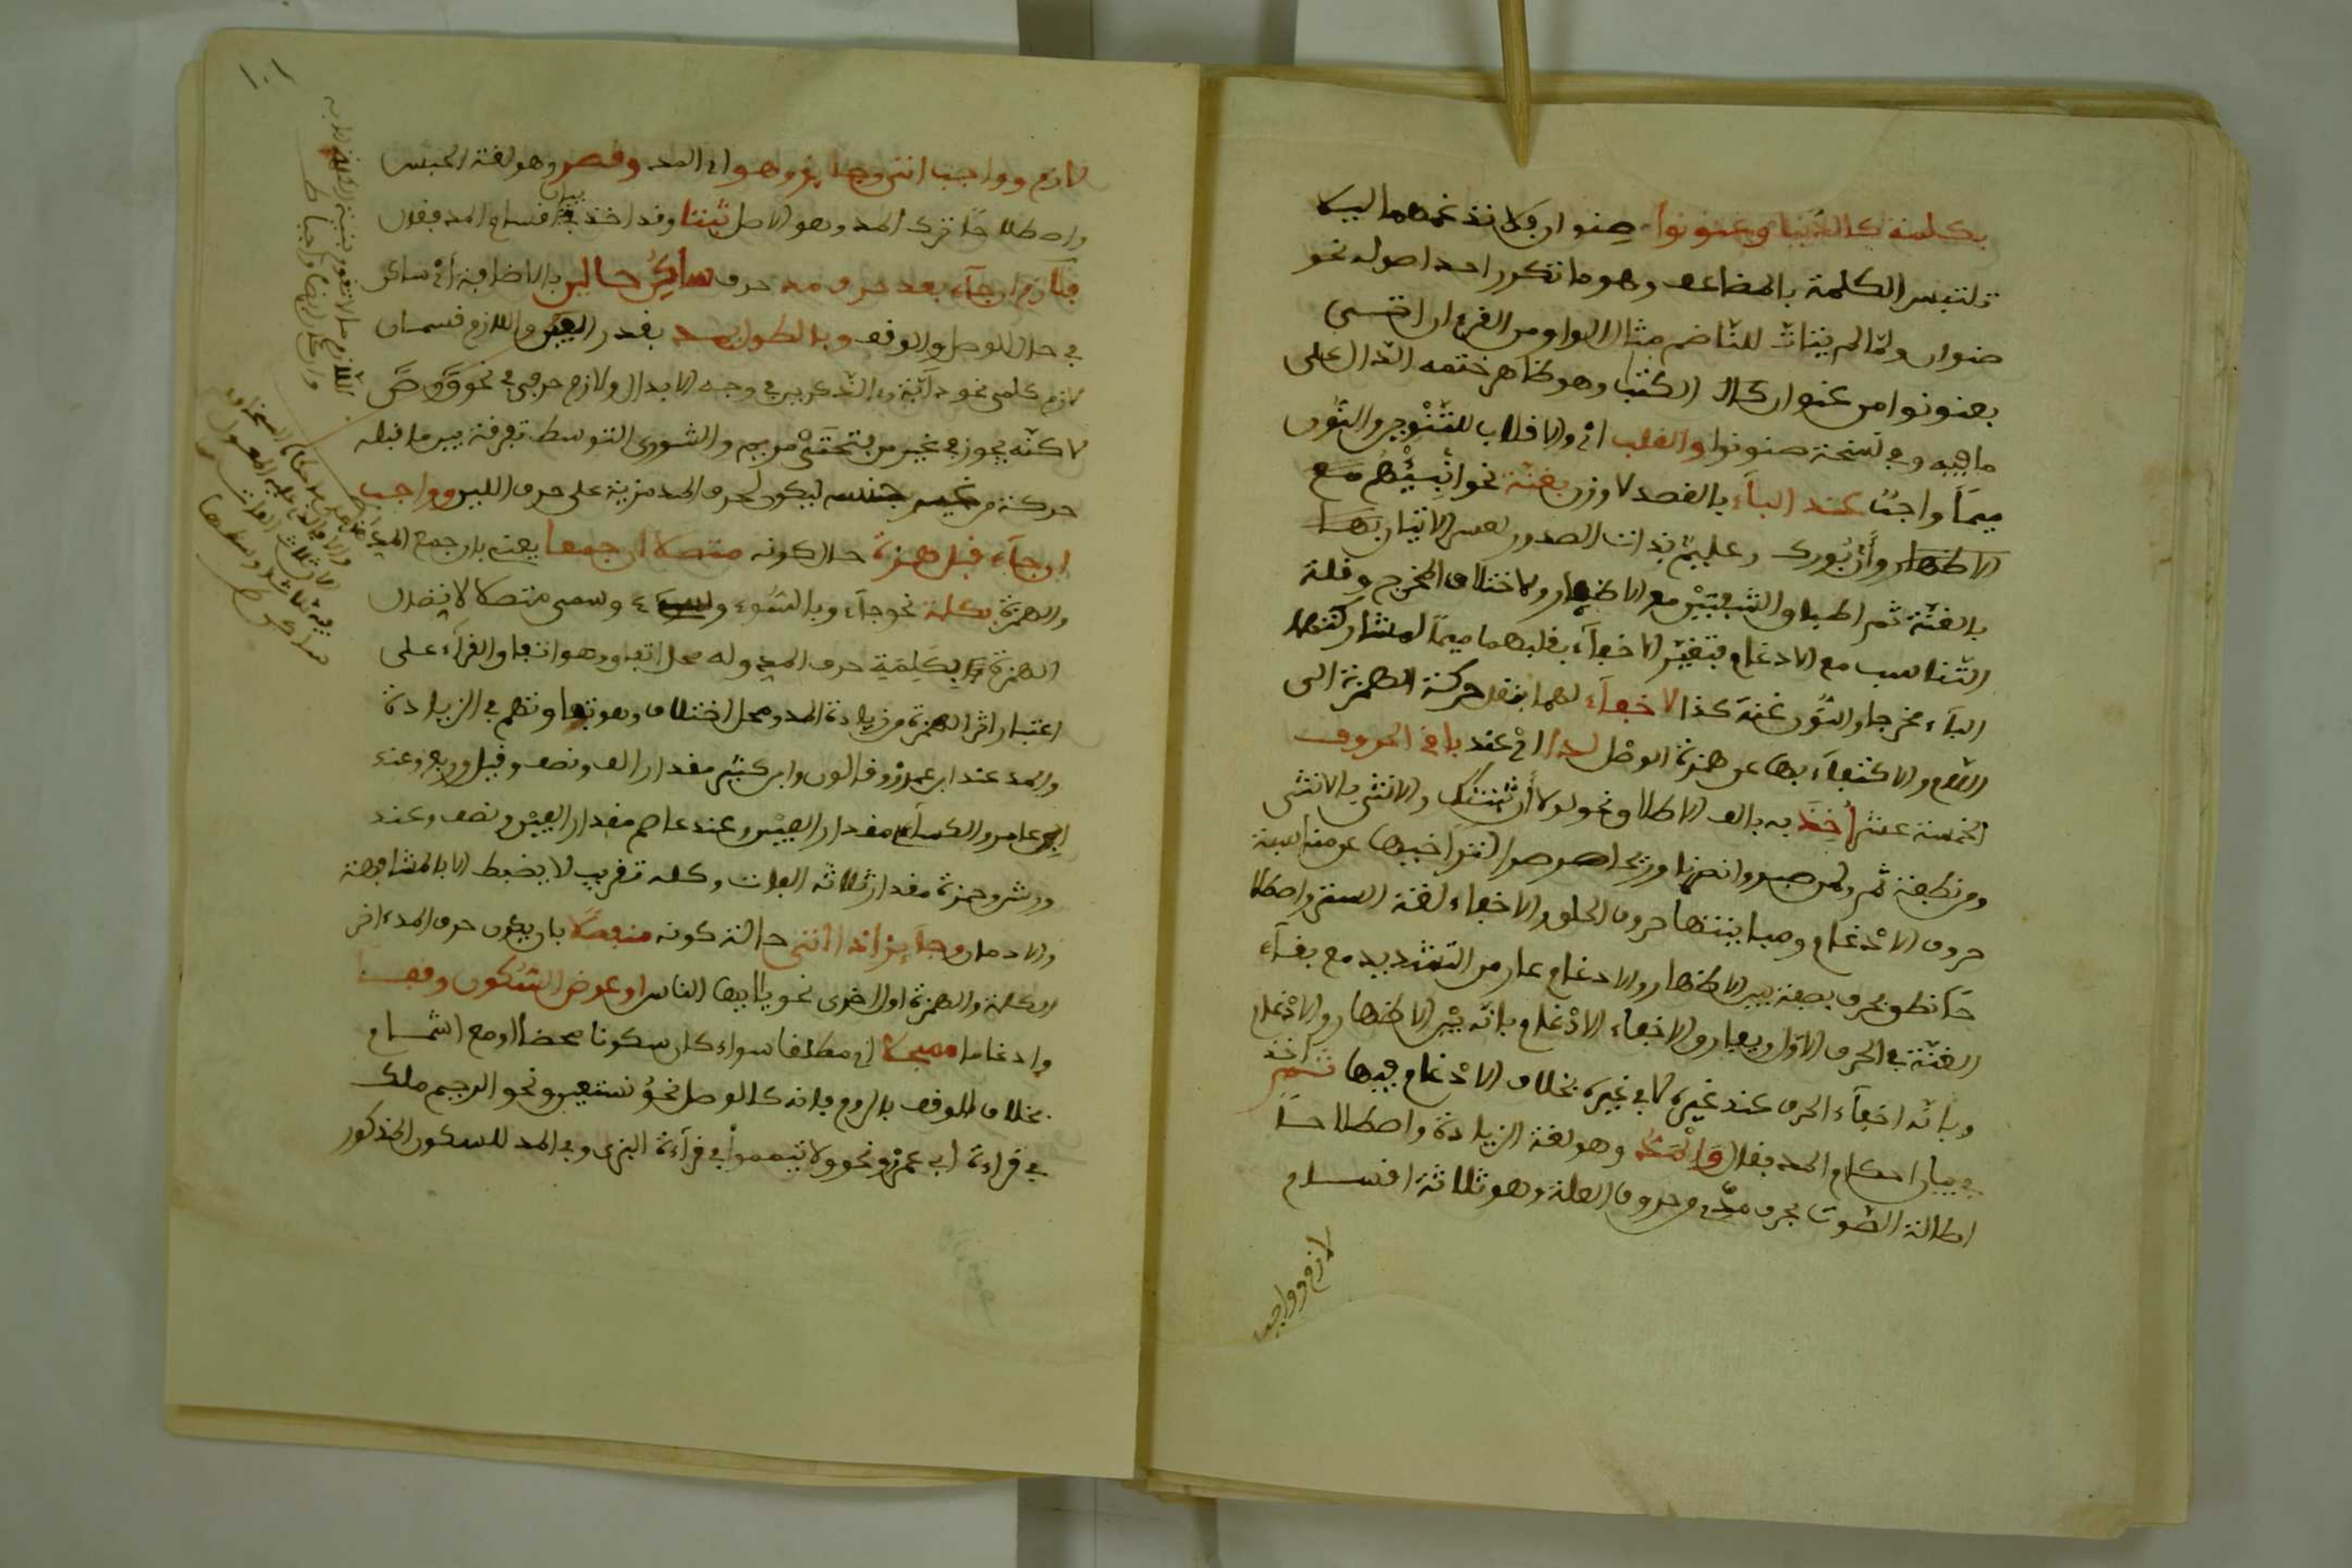 بكلمة كالدنيا وعنونوا صنوان فلا تدغمهما ليلا
تلتبس الكلمة بالمضاعف وهو ما تكرر احد اصوله نحو
صنوان ولما لم يتات للناضم مثال الواو من القرءان اتى
بعنونوا من عنوان كال الكتب وهو ظاهر ختمه الدال على
ما فيه وفي نسخة صنونوا والقلب اي والاقلاب للتنوين والنون
ميما واجب عند الباء بالقصر لا وزن بغنة نحو انبيهم مع
الاظهار وأن بورك وعليم بذات الصدور لعسر الاتيان بها
بالغنة ثم اطباق الشفتين مع الاظهار ولاختلاف المخرج وقلة
التناسب مع الادغام فتعين الاخفاء بقلبهما ميما لمشاركتها
الباء مخرجا والنون غنة كذا لاخفاء لهما بنقل حركة الهمزة الى
اللام والاكتفاء بها عن همزة الوصل لدا اي عند باقي الحروف
الخمسة عشر أخذ به بالف الاطلاق نحو لولا أن ثبتنك والانثى بالانثى
ومن نطفة ثم ولمن صبر وانصرنا وريحا صرصرا لتراخيها عن مناسبة
حروف الادغام ومباينتها حروف الحلق والاخفاء لغة الستر واصطلا
حا نطق بحرف بصفة بين الاظهار والادغام عار من التشديد مع بقاء
الغنة في الحرف الاول ويفارق الاخفاء الادغام بانه بين الاظهار والادغام
وبانه اخفاء الحرف عند غيره لا في غيره بخلاف الادغام فيهما ثم اخذ
في بيان احكام المد فقال والمد وهو لغة الزيادة واصطلاحا
اطالة الصوت بحرف مدي من حروف العلة وهو ثلاثة اقسام
لازم وواجب
١٠١
لازم وواجب اتى وجايز وهو اي المد وقصر وهو لغة الحبس
واصطلاحا ترك المد وهو الاصل ثبتا وقد اخذ في بيان اقسام المد فقال
فلازم ان جاء بعد حرف مد حرف ساكن حالين بالاضافة اي ساكن
في حال الوصل والوقف وبالطول يمد بقدر الفين واللازم قسمان
لازم كلمي نحو دآبة وءالذكرين في وجه الابدال ولازم حرفي في نحو ق وص
لاكنه يجوز في عين من فتحتي مريم والشورى التوسط تفرقة بين ما قبله
حركة من غير جنسه ليكون لحرف المد مزية على حرف اللين وواجب
ان جاء قبل همزة حال كونه متصلا ان جمعا يعني بان جمع المد
والهمزة بكلمة نحو جاء وبالسوء وسىء وسمى متصلا لاتصال
الهمزة بكلمة حرف المد وله محل اتفاق وهو اتفاق القراء على
اعتبار اثر الهمزة من زيادة المد ومحل اختلاف وهو تفاوتهم في الزيادة
والمد عند ابي عمرو وقالون وابن كثير مقدار الف ونصف وقيل وربع وعند
ابن عامر والكساءي مقدار الفين وعند عاصم مقدار الفين ونصف وعند
ورش وحمزة مقدار ثلاثة الفات وكله تقريب لا يضبط الا بالمشافهة
والادمان وجايز اذا اتى حالة كونه منفصلا بان يكون حرف المد ءاخر
الكلمة والهمزة اول اخرى نحو يا ايها الناس او عرض السكون وقفا
وادغاما مسجلا اي مطلقا سواء كان سكونا محضا او مع اشمام
بخلاف الوقف بالروم فانه كالوصل نحو نستعين ونحو الرحيم ملك
في قراءة ابي عمرو ونحو ولا تيمموا في قراءة البزي وفي المد للسكون المذكور